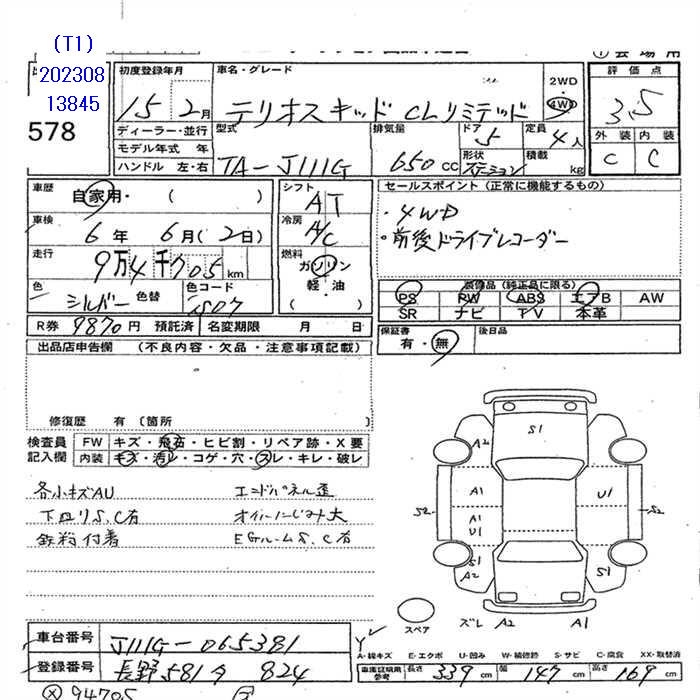 (T1)
202308
13845
578
初度登録年月
15 2月
車名・グレード
テリオスキッド CLリミテッド
2WD
4WD
評価点
3.5
外装 内装
C C
ディーラー・並行
モデル年式 年
ハンドル 左・右
型式
TA-J111G
排気量
650 CC
ドア
5
形状
ステーション
定員
4人
積載
kg
車歴
自家用・( )
車検
6年 6月(2日)
走行
9万4千705km
色
シルバー
色替
色コード
S07
シフト
AT
冷房
A/C
燃料
ガソリン
軽・油
( )
セールスポイント (正常に機能するもの)
・4WD
・前後ドライブレコーダー
装備品 (純正品に限る)
PS PW ABS エアB AW
SR ナビ TV 本革
R券 9870円 預託済 名変期限 月 日
保証書
有・無
後日品
出品店申告欄 (不良内容・欠品・注意事項記載)
修復歴 有 (箇所 )
検査員
記入欄
FW キズ・飛石・ヒビ割・リペア跡・X要
内装 キズ・汚レ・コゲ・穴・スレ・キレ・破レ
各小キズAU エンドパネル歪
下廻りS、C有 オイルにじみ大
鉄粉付着 EGルームS、C有
S1
A2
A1
U1
S2
A1
U1
S2
S1
A2
S1
スペア
ズレ A2 A1
車台番号
J111G-065381
登録番号
長野581 824
A・線キズ E・エクボ U・凹み W・補修跡 S・サビ C・腐食 XX・取替済
車庫証明用
参考
長さ 339 cm 幅 147 cm 高さ 169 cm
94705